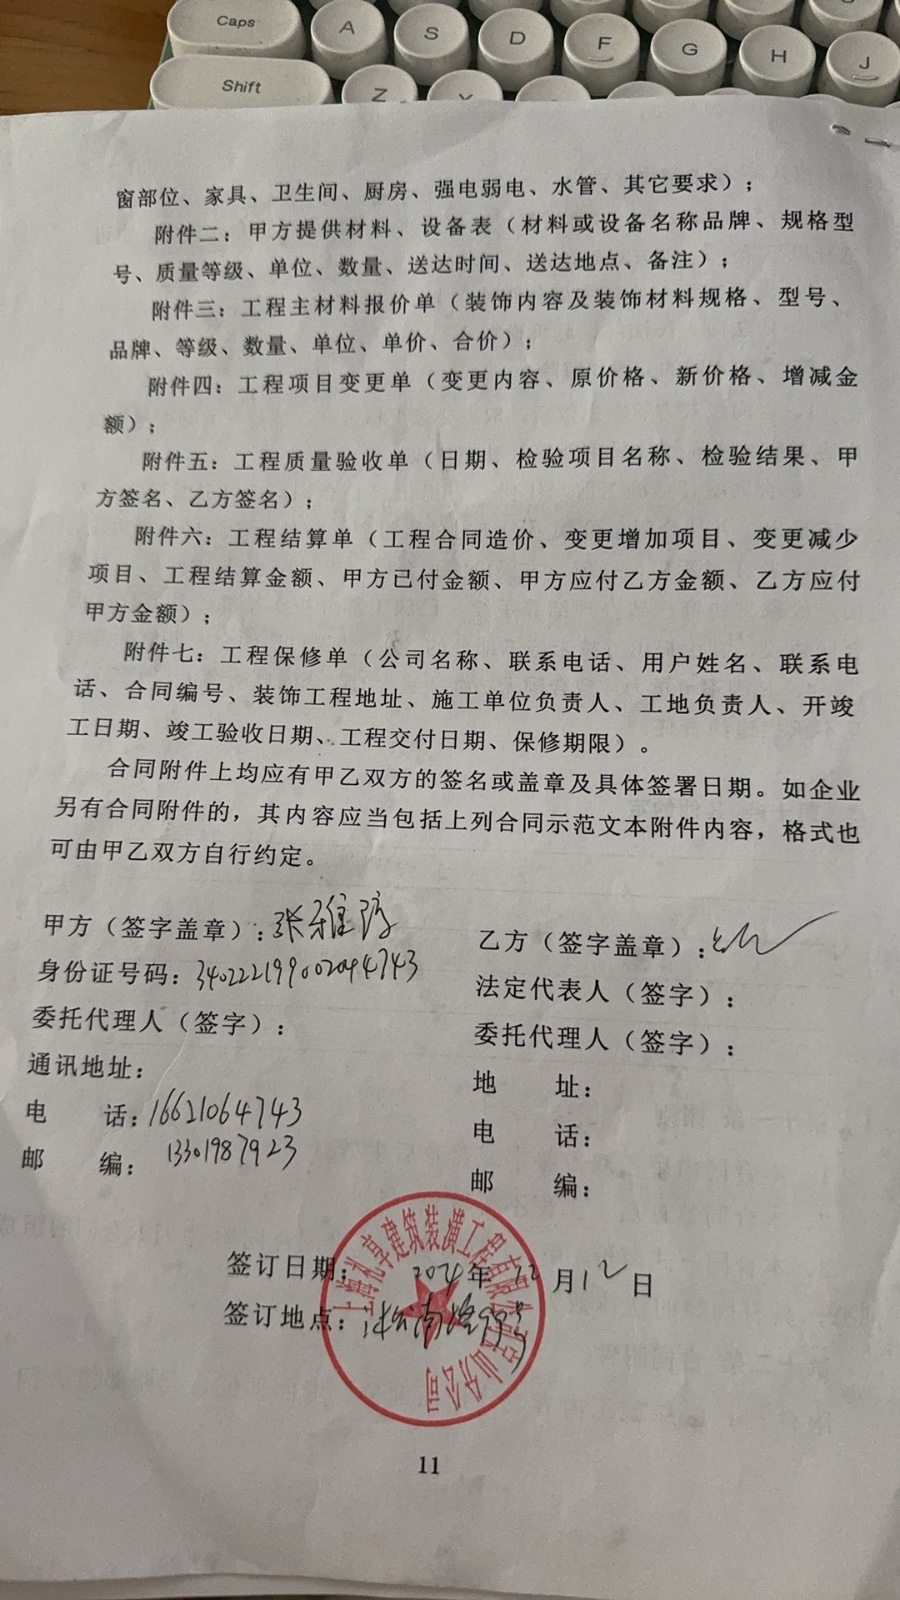 Caps
A S D F G H J
Shift
Z
窗部位、家具、卫生间、厨房、强电弱电、水管、其它要求）；
附件二：甲方提供材料、设备表（材料或设备名称品牌、规格型
号、质量等级、单位、数量、送达时间、送达地点、备注）；
附件三：工程主材料报价单（装饰内容及装饰材料规格、型号、
品牌、等级、数量、单位、单价、合价）；
附件四：工程项目变更单（变更内容、原价格、新价格、增减金
额）；
附件五：工程质量验收单（日期、检验项目名称、检验结果、甲
方签名、乙方签名）；
附件六：工程结算单（工程合同造价、变更增加项目、变更减少
项目、工程结算金额、甲方已付金额、甲方应付乙方金额、乙方应付
甲方金额）；
附件七：工程保修单（公司名称、联系电话、用户姓名、联系电
话、合同编号、装饰工程地址、施工单位负责人、工地负责人、开竣
工日期、竣工验收日期、工程交付日期、保修期限）。
合同附件上均应有甲乙双方的签名或盖章及具体签署日期。如企业
另有合同附件的，其内容应当包括上列合同示范文本附件内容，格式也
可由甲乙双方自行约定。
甲方（签字盖章）：张雅
乙方（签字盖章）：
身份证号码：340222199002044743
法定代表人（签字）：
委托代理人（签字）：
委托代理人（签字）：
通讯地址：
地 址：
电 话：16621064743
电 话：
邮 编：13301987923
邮 编：
签订日期： 2024年12月12日
签订地点：淞南路99号
上海礼享建筑装潢工程有限公司宝山分公司
11